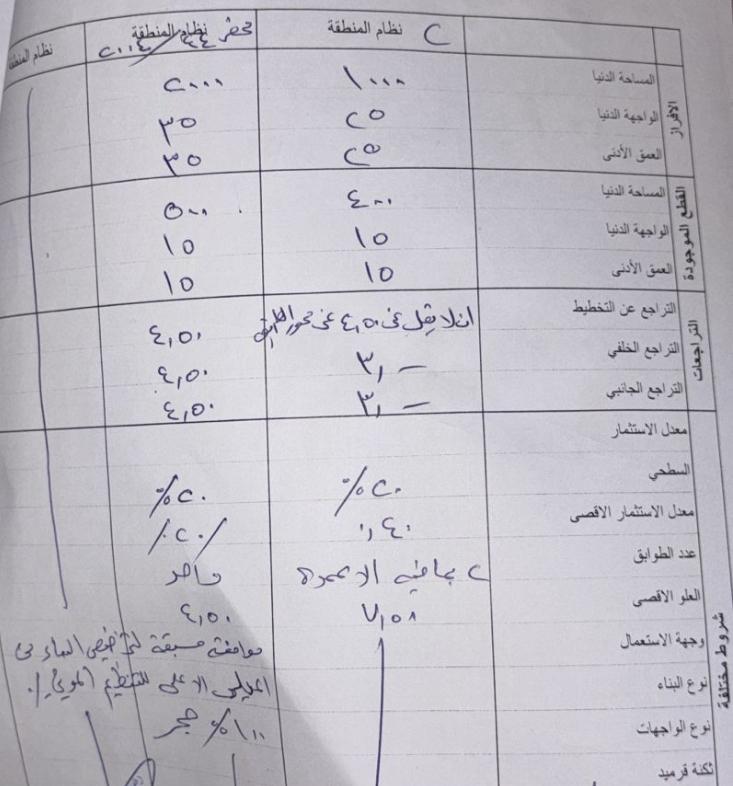 نظام المنطقة C
نظام المنطقة محضر ٤٤/٢٠١٤
نظام المنطقة
الافراز
المساحة الدنيا ١٠٠٠ ٢٠٠٠
الواجهة الدنيا ٢٥ ٣٥
العمق الأدنى ٢٥ ٣٥
القطع الموجودة
المساحة الدنيا ٤٠٠ ٥٠٠
الواجهة الدنيا ١٥ ١٥
العمق الأدنى ١٥ ١٥
التراجعات
التراجع عن التخطيط ان لا يقل عن ٤,٥٠ عن محور الطريق ٤,٥٠
التراجع الخلفي ٣,— ٤,٥٠
التراجع الجانبي ٣,— ٤,٥٠
شروط مختلفة
معدل الاستثمار
السطحي ٢٠٪ ٢٠٪
معدل الاستثمار الاقصى ٠,٤٠ ٢٠٪
عدد الطوابق ٢ بما فيه الاعمدة واحد
العلو الاقصى ٤,٥٠
وجهة الاستعمال موافقة مسبقة البناء من
نوع البناء المجلس الاعلى للتنظيم المدني
نوع الواجهات ١٠٠٪ حجر
ثكنة قرميد